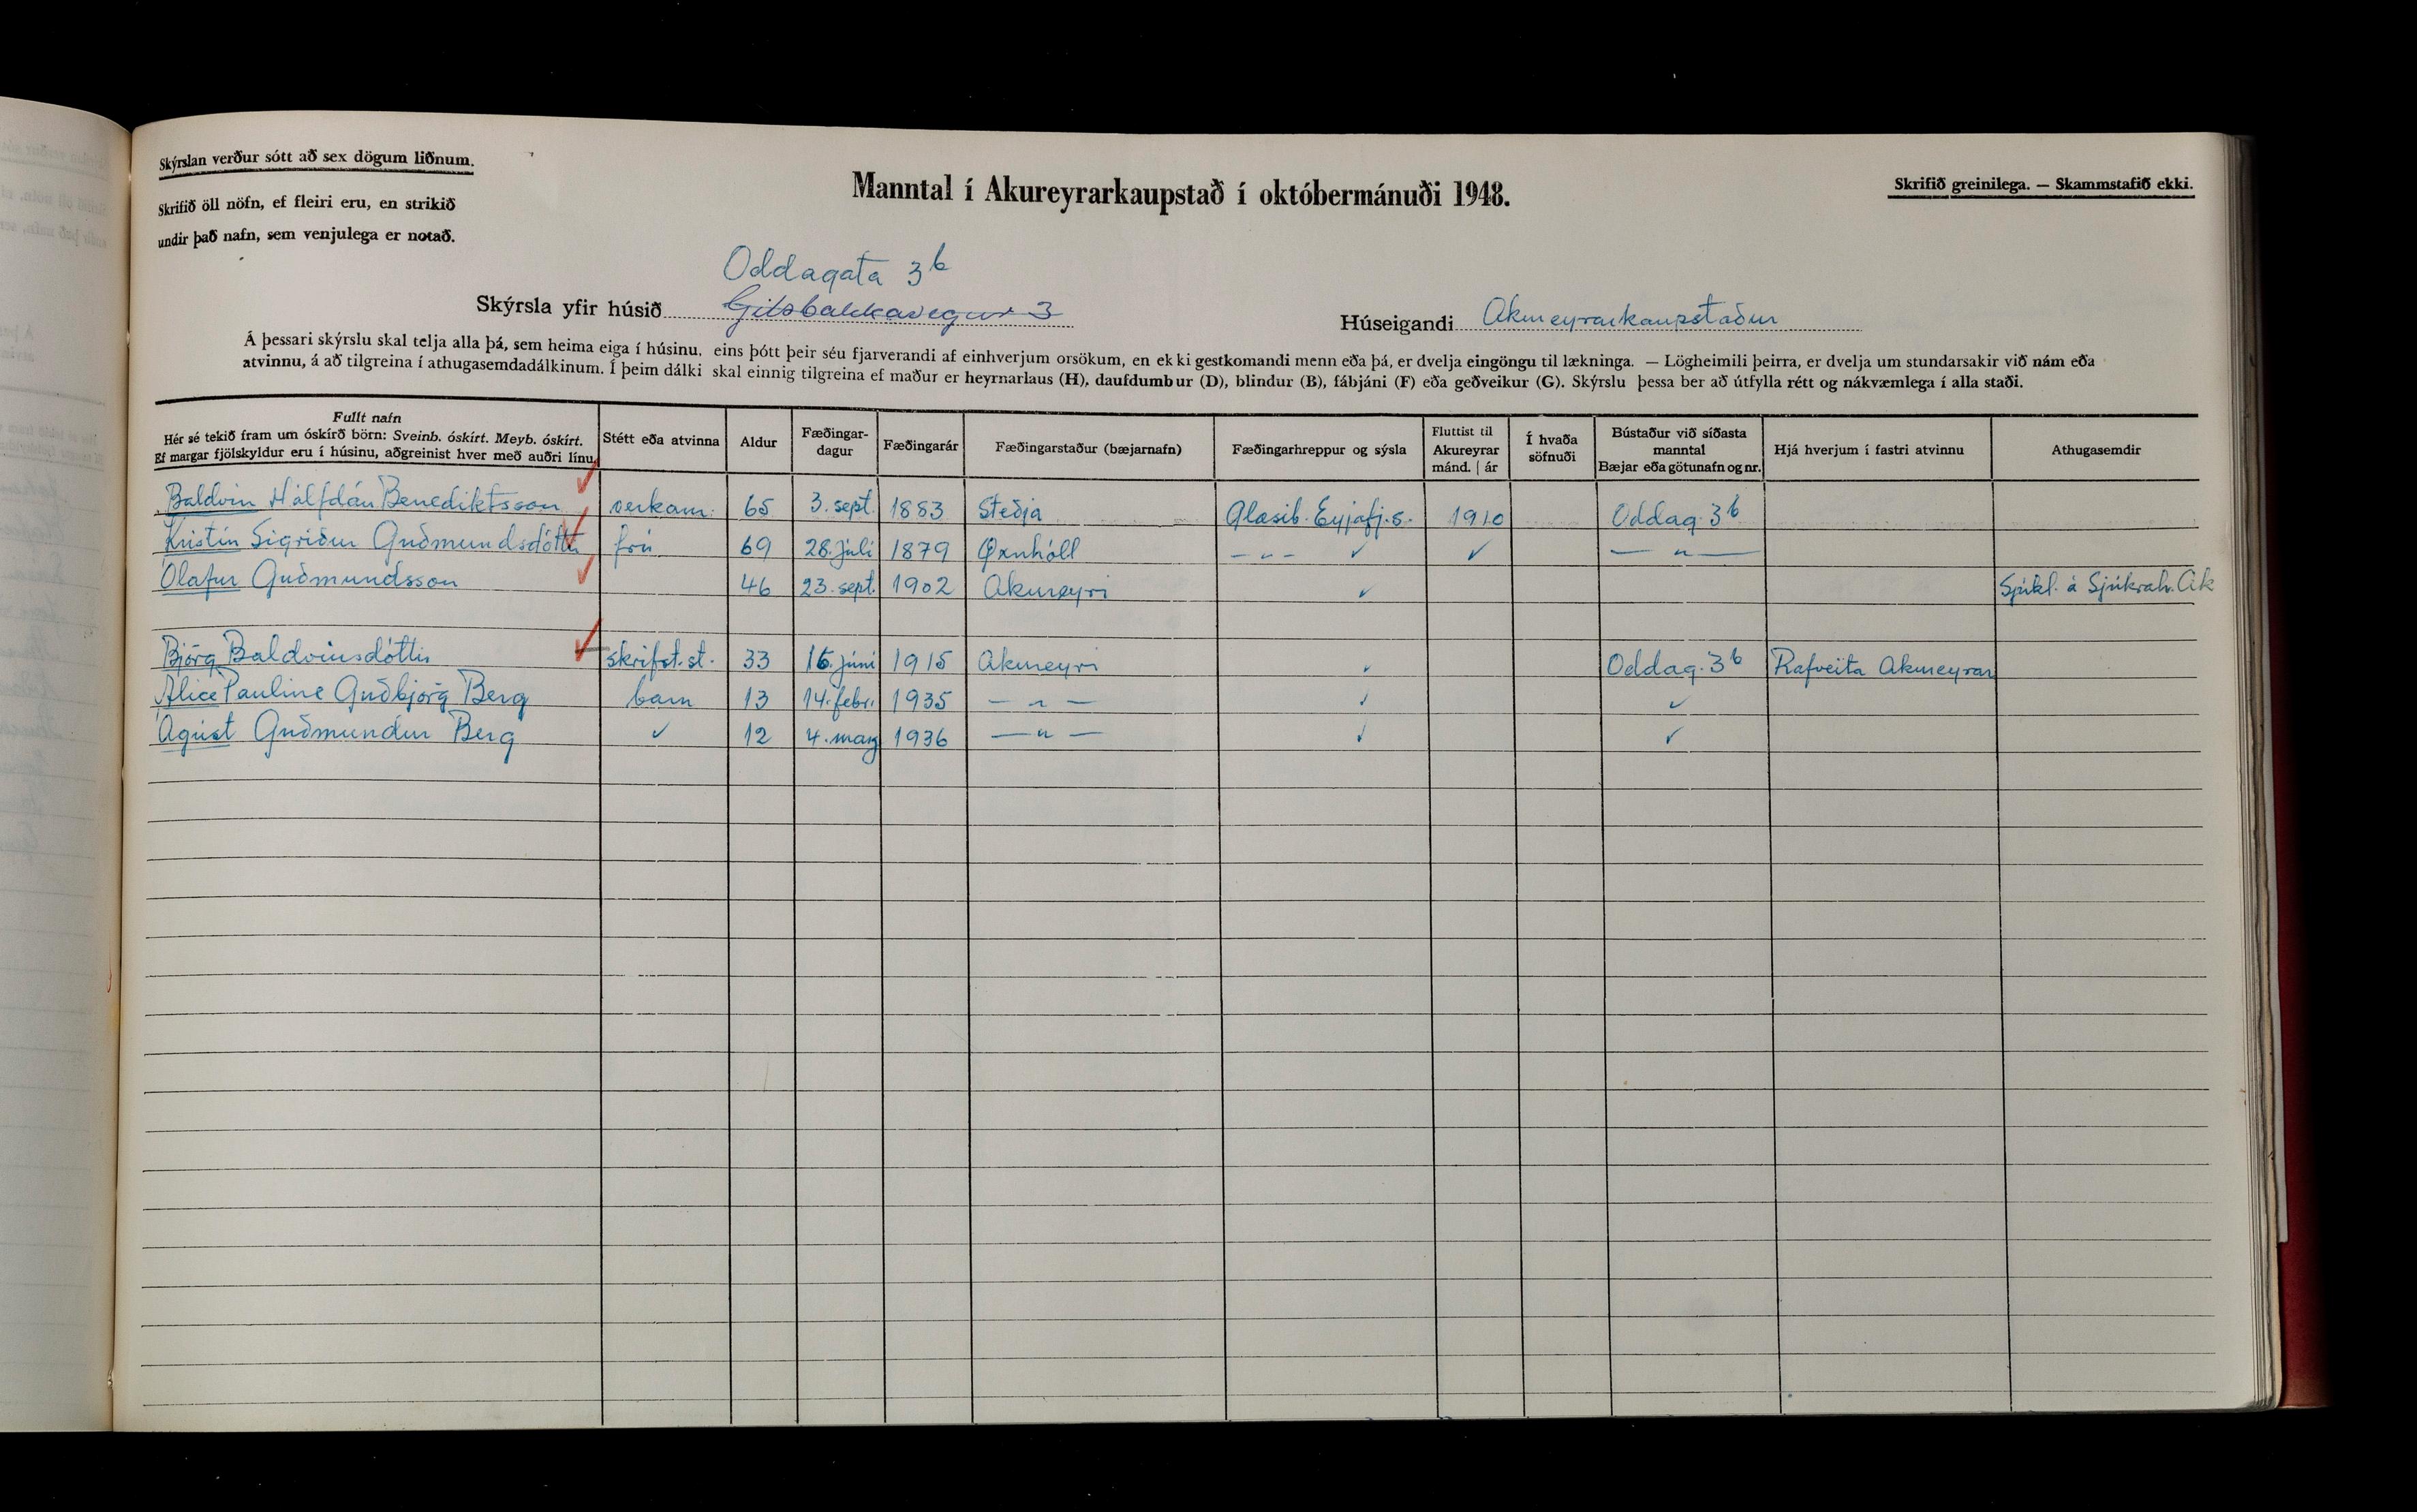 Skýrslan verður sótt að sex dögum liðnum.
Skrifið öll nöfn, ef fleiri eru, en strikið
undir það nafn, sem venjulega er notað.
Manntal í Akureyrarkaupstað í októbermánuði 1948.
Skrifið greinilega. — Skammstafið ekki.
Oddagata 3b
Skýrsla yfir húsið Gilsbakkavegur 3
Húseigandi Akureyrarkaupstaður
Á þessari skýrslu skal telja alla þá, sem heima eiga í húsinu, eins þótt þeir séu fjarverandi af einhverjum orsökum, en ekki gestkomandi menn eða þá, er dvelja eingöngu til lækninga. — Lögheimili þeirra, er dvelja um stundarsakir við nám eða
atvinnu, á að tilgreina í athugasemdadálkinum. Í þeim dálki skal einnig tilgreina ef maður er heyrnarlaus (H), daufdumbur (D), blindur (B), fábjáni (F) eða geðveikur (G). Skýrslu þessa ber að útfylla rétt og nákvæmlega í alla staði.
Fullt nafn
Hér sé tekið fram um óskírð börn: Sveinb. óskírt. Meyb. óskírt.
Ef margar fjölskyldur eru í húsinu, aðgreinist hver með auðri línu.
Stétt eða atvinna
Aldur
Fæðingar-
dagur
Fæðingarár
Fæðingarstaður (bæjarnafn)
Fæðingarhreppur og sýsla
Fluttist til
Akureyrar
mánd. | ár
Í hvaða
söfnuði
Bústaður við síðasta
manntal
Bæjar eða götunafn og nr.
Hjá hverjum í fastri atvinnu
Athugasemdir
Baldvin Hálfdán Benediktsson verkam. 65 3. sept. 1883 Steðja Glæsib. Eyjafj.s. 1910 Oddag. 3b
Kristín Sigríður Guðmundsdóttir frú 69 28. júlí 1879 Øxnhóll – " – ✓ ✓ — " —
Ólafur Guðmundsson 46 23. sept. 1902 Akureyri ✓ Sjúkl. á Sjúkrah. Ak
Björg Baldvinsdóttir skrifst.st. 33 16. júní 1915 Akureyri ✓ Oddag. 3b Rafveita Akureyrar
Alice Pauline Guðbjörg Berg barn 13 14. febr. 1935 — " — ✓ ✓
Ágúst Guðmundur Berg ✓ 12 4. marz 1936 — " — ✓ ✓